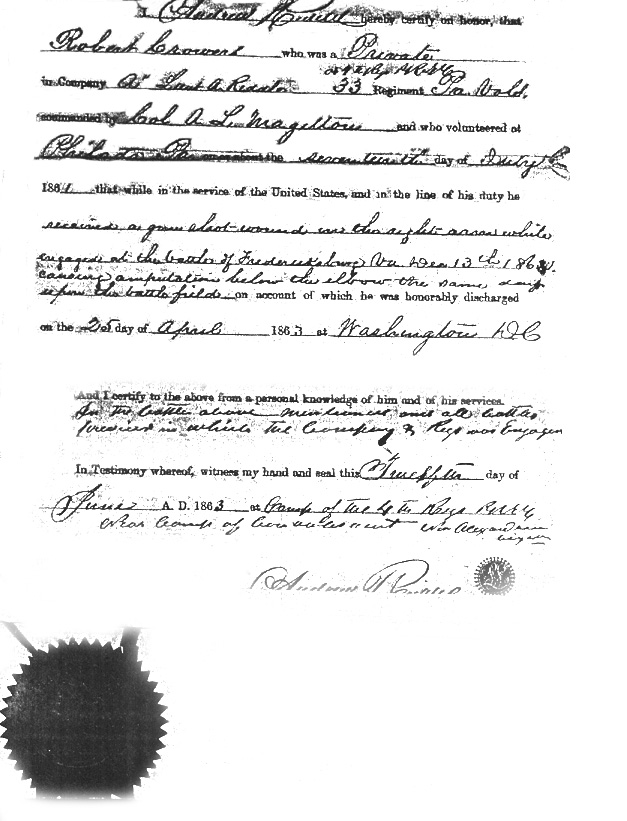 I, Andrew Russell hereby certify on honor, that
Robert Crowers who was a Private
or 4 Reg P.R.V.C.
in Company A Lieut A. 33 Regiment Pa Vols,
commanded by Col A. L. Magilton and who volunteered at
Philada Pa on or about the seventeenth day of July
1861, that while in the service of the United States, and in the line of his duty he
received a gun shot wound in the right arm while
engaged at the battle of Fredericksburg Va Dec 13th 1862.
causing amputation below the elbow the same day
upon the battle field on account of which he was honorably discharged
on the 25 day of April 1863 at Washington D.C
And I certify to the above from a personal knowledge of him and of his services.
In the battle above mentioned and all battles
previous in which the Company & Regt was Engaged
In Testimony whereof, witness my hand and seal this Twelfth day of
June A. D. 1863 at Camp of the 4th Regt P.R.V.C
Near Camp of Convalescent Near Alexandria
Andrew Russell